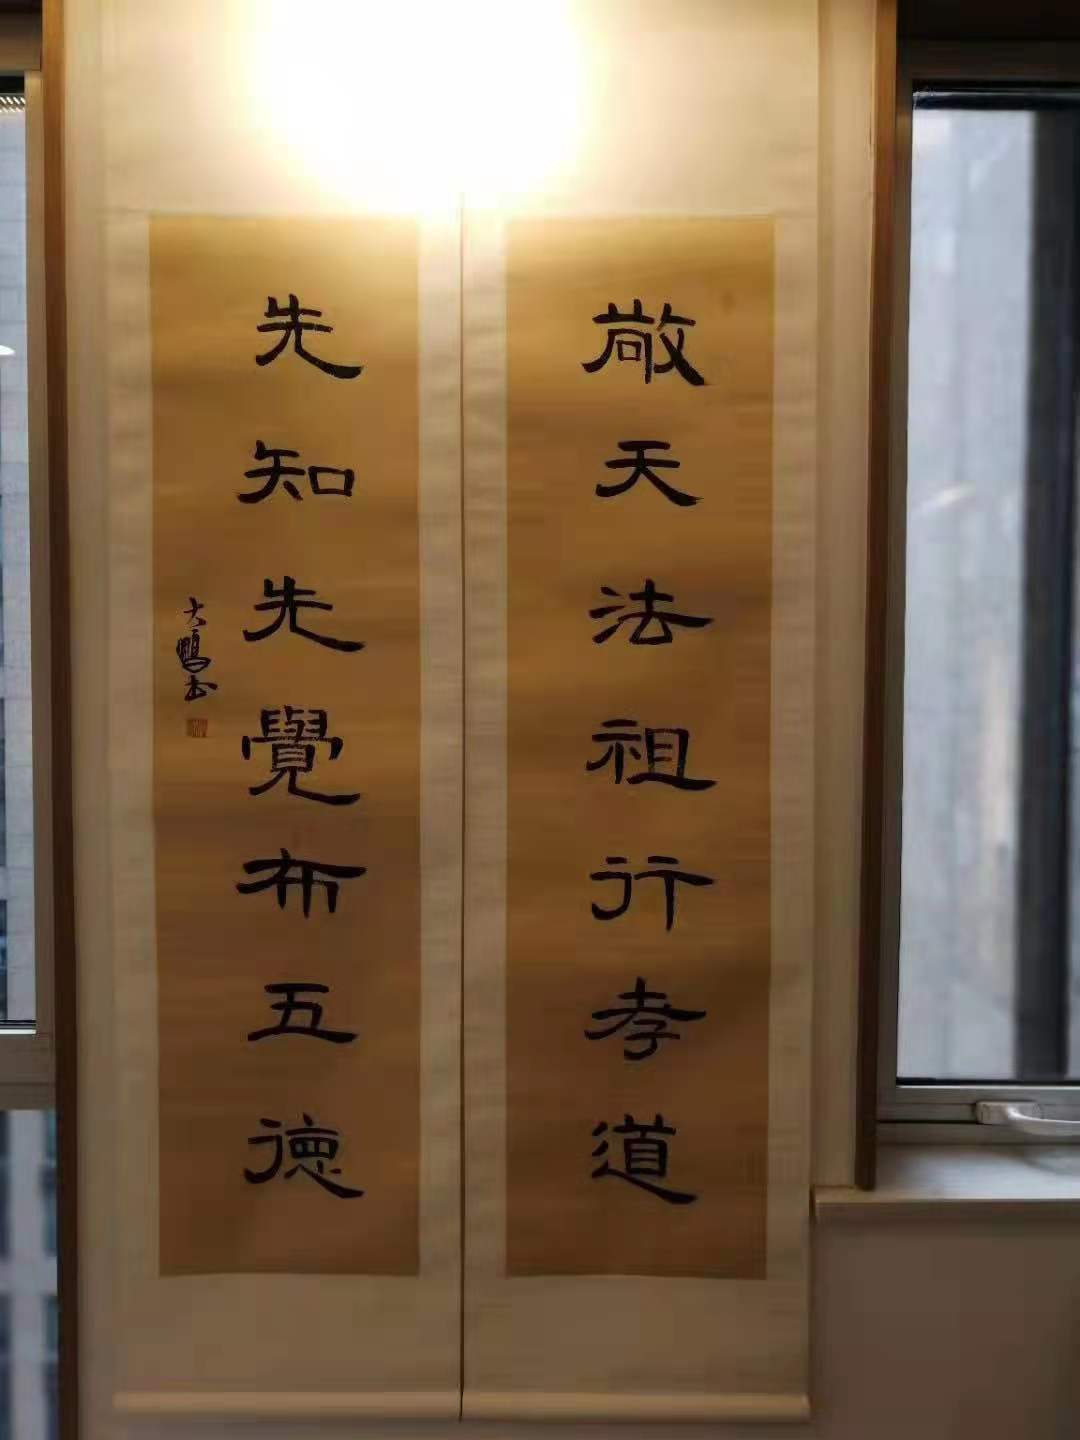 敬天法祖行孝道
先知先覺布五德
大鵬书